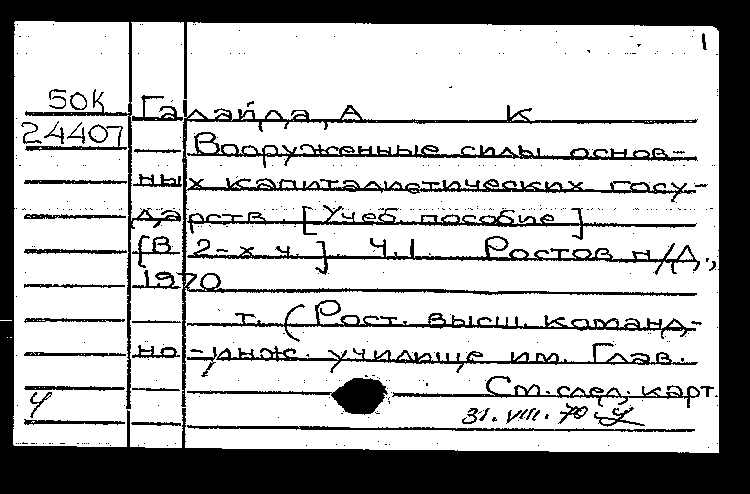 1
50К Галайда, А К
24407 Вооруженные силы основ-
ных капиталистических госу-
дарств. [Учеб. пособие]
[В 2-х ч.]. Ч.1. Ростов н/Д.,
1970
т. (Рост. высш. команд-
но-инж. училище им. Глав.
См. след. карт.
31.VIII.70